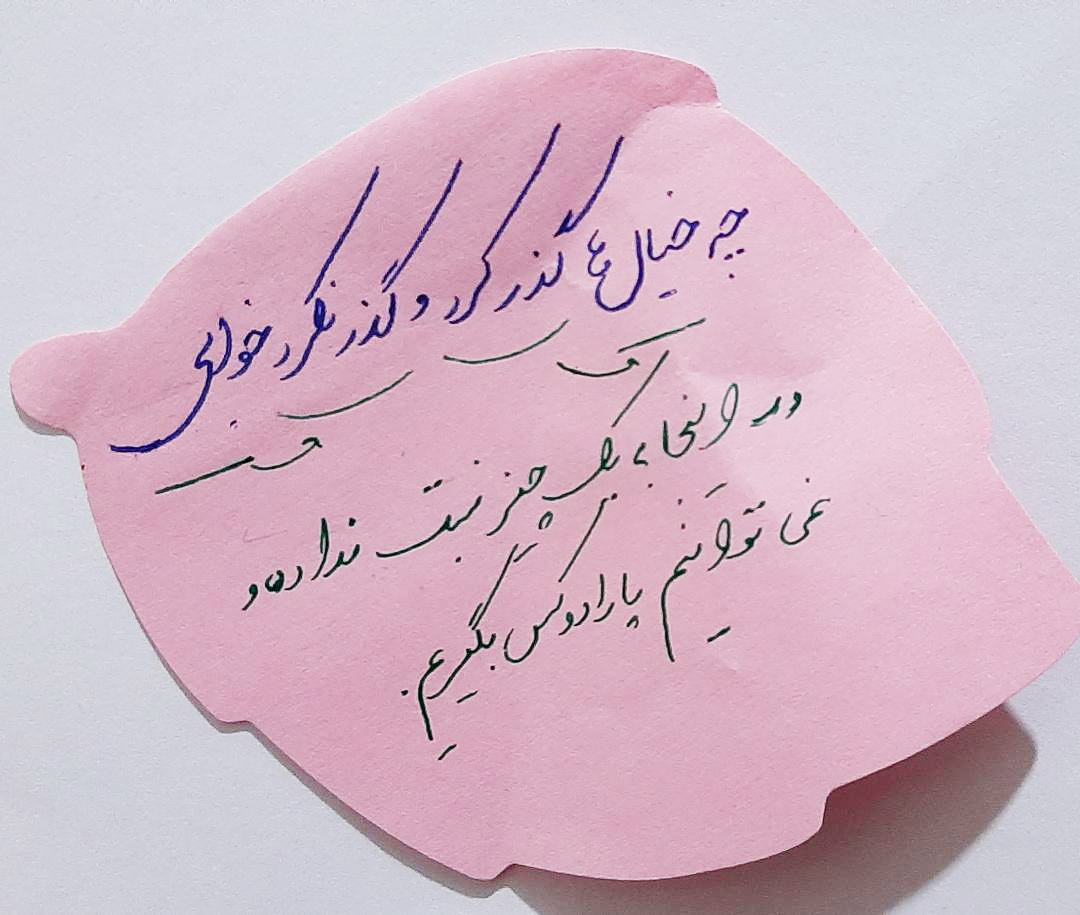 چه خیال ها گذر کرد و گذر نکرد خوابی
در اینجا به یک چیز نسبت نداده و
نمی توانیم پارادوکس بگیریم.